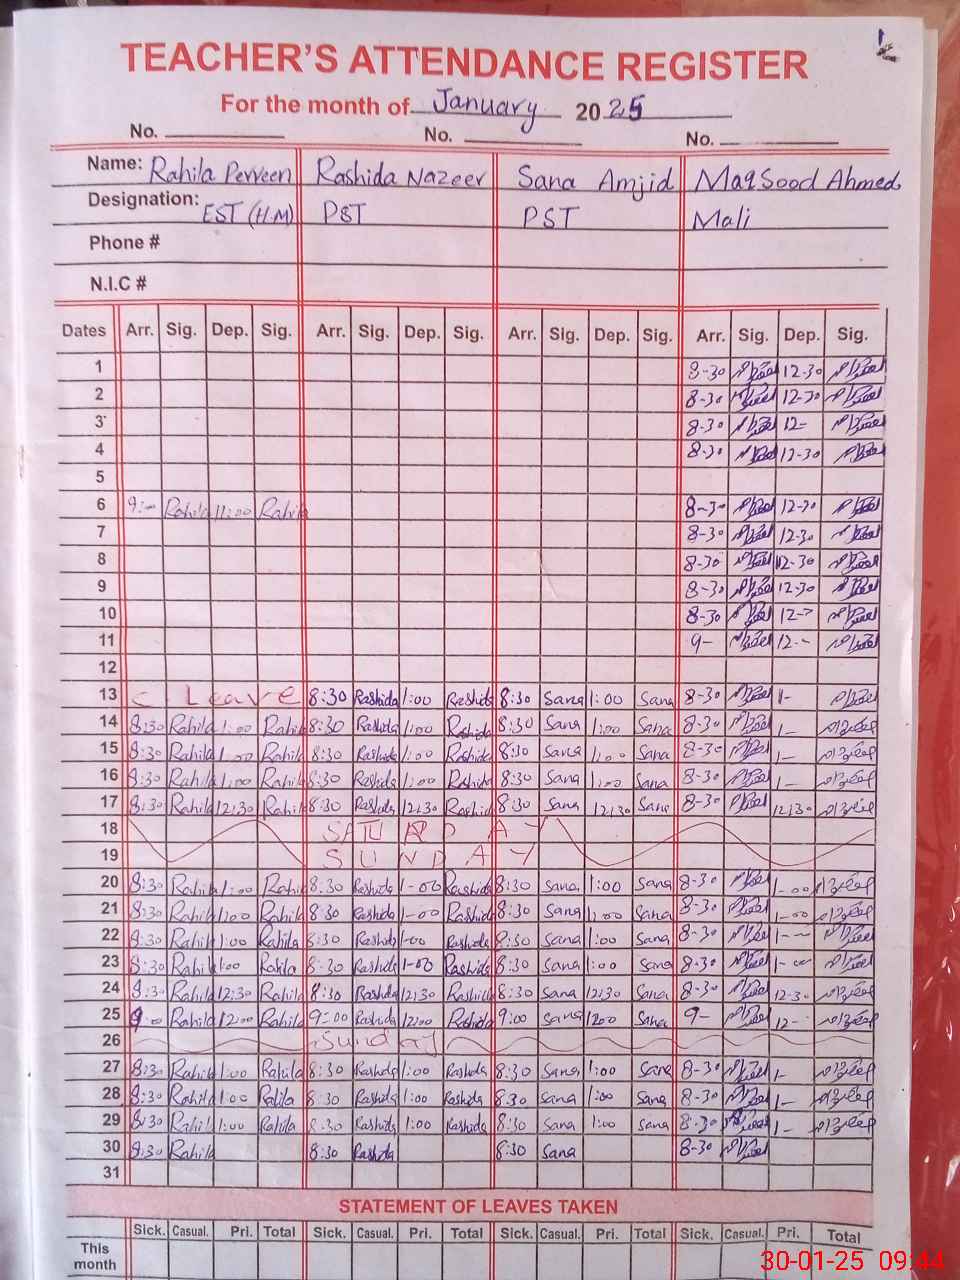 TEACHER'S ATTENDANCE REGISTER
For the month of January 2025
No. No. No.
Name: Rahila Perveen Rashida Nazeer Sana Amjid Maqsood Ahmed
Designation: EST (H.M) PST PST Mali
Phone #
N.I.C #
Dates Arr. Sig. Dep. Sig. Arr. Sig. Dep. Sig. Arr. Sig. Dep. Sig. Arr. Sig. Dep. Sig.
1 8-30 12-30
2 8-30 12-30
3 8-30 12-
4 8-30 12-30
5
6 9:-- Rahila 11:00 Rahila 8-30 12-30
7 8-30 12-30
8 8-30 12-30
9 8-30 12-30
10 8-30 12-
11 9- 12--
12
13 C Leave 8:30 Rashida 1:00 Rashida 8:30 Sana 1:00 Sana 8-30 1-
14 8:30 Rahila 1:00 Rahila 8:30 Rashida 1:00 Rashida 8:30 Sana 1:00 Sana 8-30 1-
15 8:30 Rahila 1:00 Rahila 8:30 Rashida 1:00 Rashida 8:30 Sana 1:00 Sana 8-30 1-
16 8:30 Rahila 1:00 Rahila 8:30 Rashida 1:00 Rashida 8:30 Sana 1:00 Sana 8-30 1-
17 8:30 Rahila 12:30 Rahila 8:30 Rashida 12:30 Rashida 8:30 Sana 12:30 Sana 8-30 12:30
18 SATURDAY
19 SUNDAY
20 8:30 Rahila 1:00 Rahila 8:30 Rashida 1-00 Rashida 8:30 Sana 1:00 Sana 8-30 1-00
21 8:30 Rahila 1:00 Rahila 8:30 Rashida 1-00 Rashida 8:30 Sana 1:00 Sana 8-30 1-00
22 8:30 Rahila 1:00 Rahila 8:30 Rashida 1-00 Rashida 8:30 Sana 1:00 Sana 8-30 1--
23 8:30 Rahila 1:00 Rahila 8:30 Rashida 1-00 Rashida 8:30 Sana 1:00 Sana 8-30 1-00
24 8:30 Rahila 12:30 Rahila 8:30 Rashida 12:30 Rashida 8:30 Sana 12:30 Sana 8-30 12-30
25 9:00 Rahila 12:00 Rahila 9-00 Rashida 12:00 Rashida 9:00 Sana 1200 Sana 9- 12--
26 Sunday
27 8:30 Rahila 1:00 Rahila 8:30 Rashida 1:00 Rashida 8:30 Sana 1:00 Sana 8-30 1-
28 8:30 Rahila 1:00 Rahila 8:30 Rashida 1:00 Rashida 8:30 Sana 1:00 Sana 8-30 1-
29 8:30 Rahila 1:00 Rahila 8:30 Rashida 1:00 Rashida 8:30 Sana 1:00 Sana 8-30 1-
30 8:30 Rahila 8:30 Rashida 8:30 Sana 8-30
31
STATEMENT OF LEAVES TAKEN
Sick. Casual. Pri. Total Sick. Casual. Pri. Total Sick. Casual. Pri. Total Sick. Casual. Pri. Total
This month
30-01-25 09:44